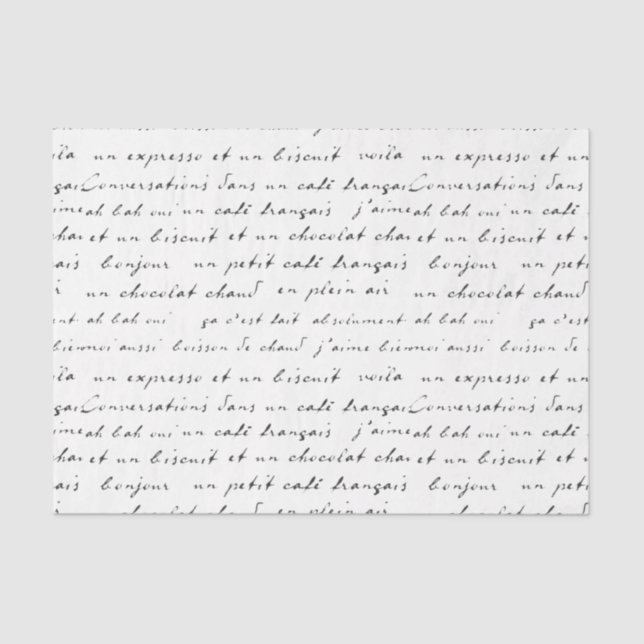 ila un expresso et un biscuit voila un expresso et un
gaiConversations dans un café françaiConversations dans
imeah bah oui un café français j'aimeah bah oui un café
chauet un biscuit et un chocolat chauet un biscuit et un
ais bonjour un petit café français bonjour un petit
un chocolat chaud en plein air un chocolat chaud
ent ah bah oui ça c'est fait absolument ah bah oui ça c'est
biènmoi aussi boisson de chaud j'aime biènmoi aussi boisson de
ila un expresso et un biscuit voila un expresso et un
gaiConversations dans un café françaiConversations dans
imeah bah oui un café français j'aimeah bah oui un café
chauet un biscuit et un chocolat chauet un biscuit et un
ais bonjour un petit café français bonjour un petit
un chocolat chaud en plein air un chocolat chaud